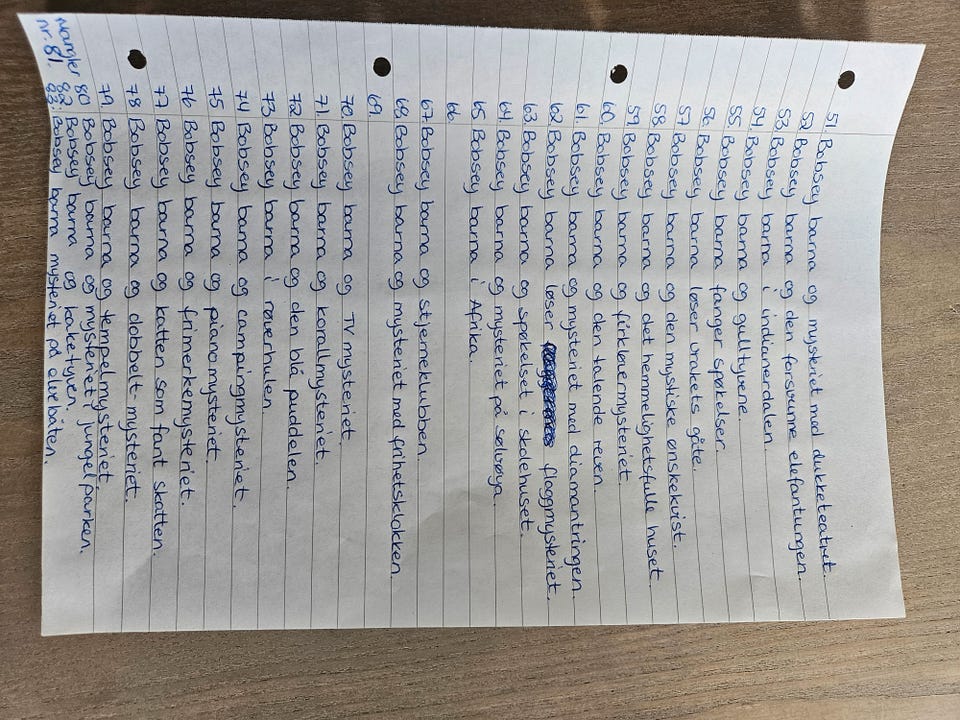 51. Bobsey barna og mysteriet med dukketeatret.
52. Bobsey barna og den forsvunne elefantungen.
53. Bobsey barna i indianerdalen.
54. Bobsey barna og gulltyvene.
55. Bobsey barna fanger spøkelser.
56. Bobsey barna løser vrakets gåte.
57. Bobsey barna og den mystiske ønskekvist.
58. Bobsey barna og det hemmelighetsfulle huset.
59. Bobsey barna og firkløvermysteriet.
60. Bobsey barna og den talende reven.
61. Bobsey barna og mysteriet med diamantringen.
62. Bobsey barna løser floggmysteriet.
63. Bobsey barna og spøkelset i skolehuset.
64. Bobsey barna og mysteriet på sølvøya.
65. Bobsey barna i Afrika.
66.
67. Bobsey barna og stjerneklubben.
68. Bobsey barna og mysteriet med frihetsklokken.
69.
70. Bobsey barna og TV mysteriet
71. Bobsey barna og korallmysteriet.
72. Bobsey barna og den blå puddelen.
73. Bobsey barna i røverhulen.
74. Bobsey barna og campingmysteriet.
75. Bobsey barna og pianomysteriet.
76 Bobsey barna og frimerkemysteriet.
77 Bobsey barna og katten som fant skatten.
78 Bobsey barna og dobbelt-mysteriet.
79 Bobsey barna og tempelmysteriet.
80 Bobsey barna og mysteriet i jungelparken.
Mangler 82 Bobsey barna og kaketyven.
nr. 81. 83: Bobsey barna mysteriet på elvebåten.